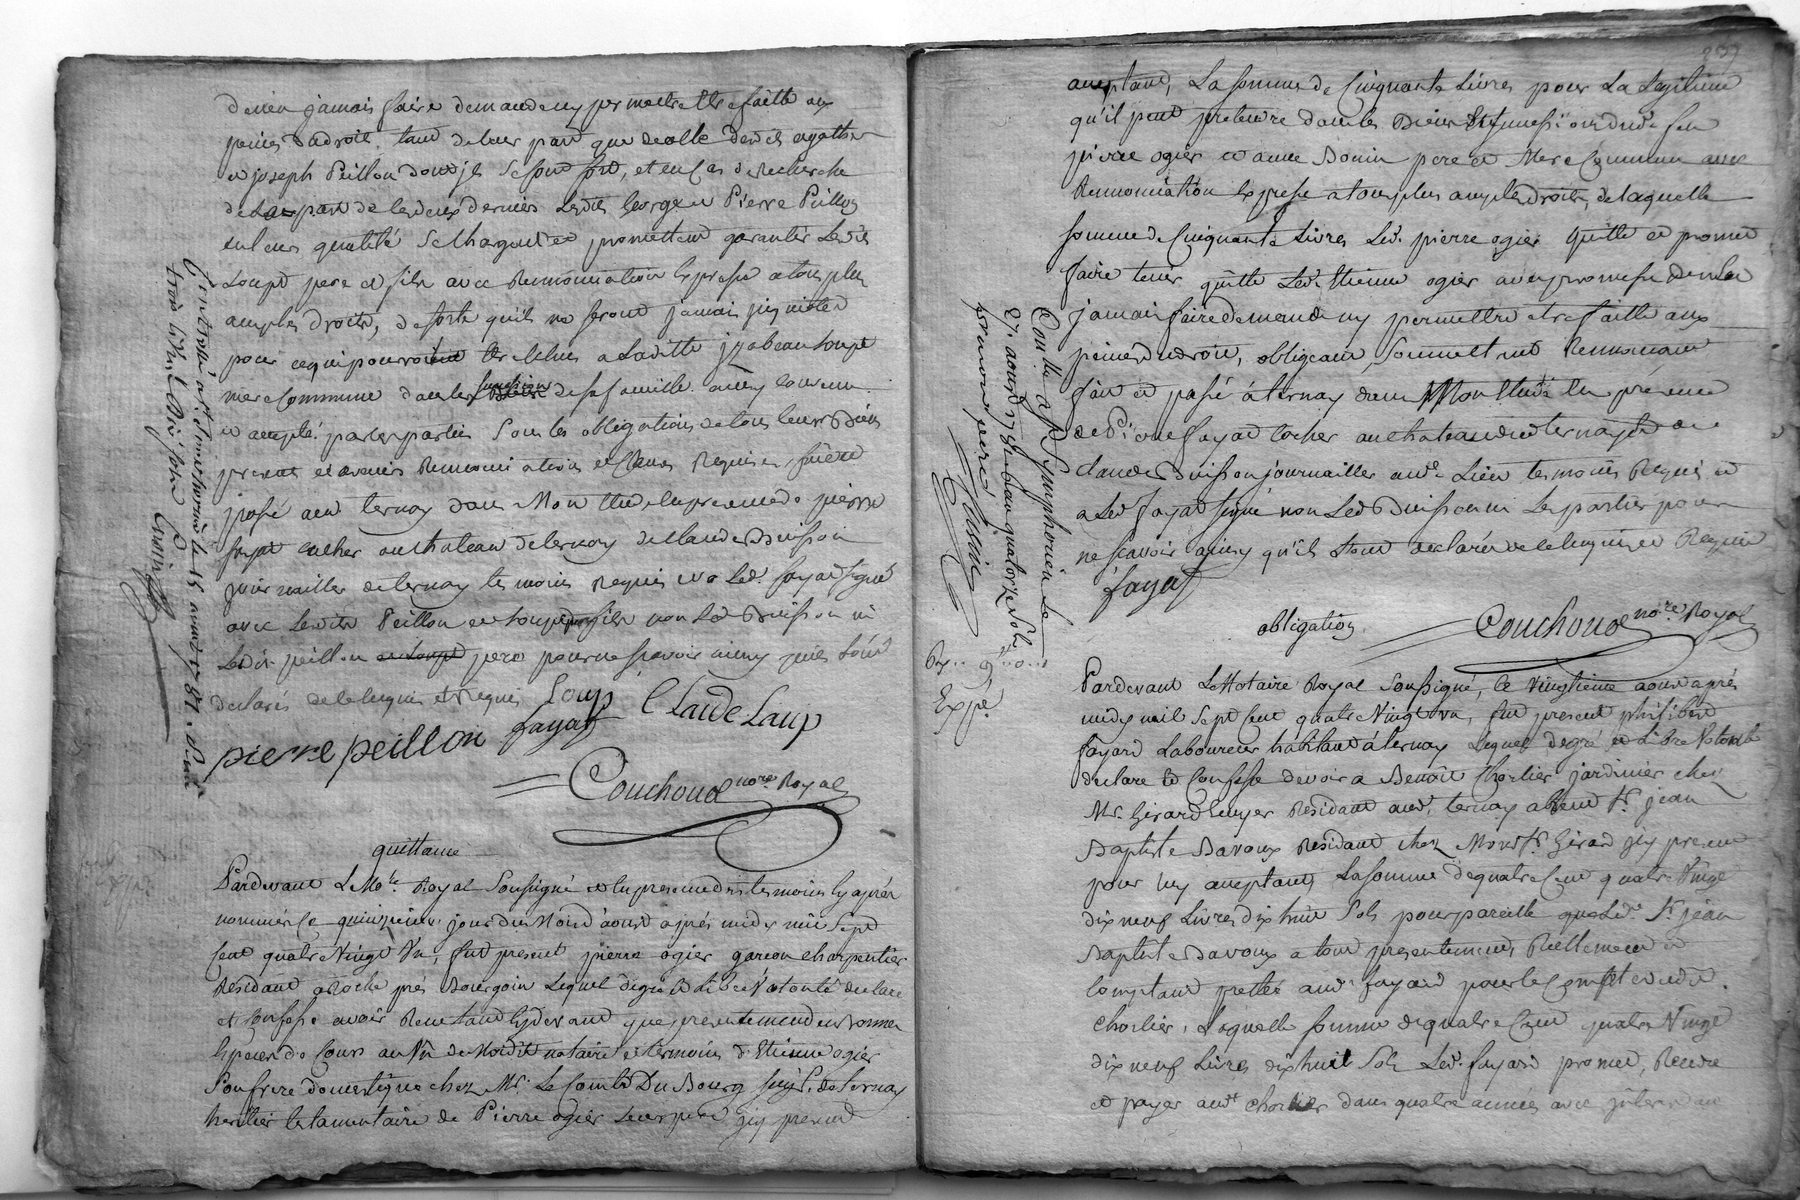 de rien jamais faire demande ny permettre etre faitte aux
peines de droit, tant de leur part que de celle desdts agathe
et joseph Peillon dont ils se font fort, et en cas de recherche
de la part de les deux derniers lesdits George et Pierre Peillon
en leurs qualité se chargent et promettent garantir lesdits
Loup pere et fils avec Renontiation Expresse a tous plus
amples droits, de sorte qu'ils ne seront jamais inquietés
pour ce qui pouvoit etre a laditte jzabeau Loup
mere commune dans les succession de sa famille ainsy convenu
et accepté par les parties sous les obligations de tous leurs Biens
presents et avenirs Renonciations et clauses Requises, fait et
passé au ternay dans Mon Etude en presence de pierre
fayat cocher au chateau de ternay et claude Buisson
journailler de ternay temoins Requis et a Led. fayat signé
avec Lesdits Peillon et Loup fils non Led Buisson ni
Ledit peillon pere pour ne sçavoir ainsy qu'ils l'ont
declarés de ce enquis et Requis Loup Claude Laup
pierre peillon fayat
Couchoud no.re Royal
quittance
Pardevant Le No.re Royal soussigné et en presence des temoins cy aprés
nommés ce quinzieme jour du Mois d'aoust aprés midy mil sept
cent quatre Vingt Un, fut present pierre ogier garcon charpentier
Residant a Roche prés Bourgoin Lequel de gré et Libre Volonté declare
et confesse avoir Recu tant cy devant que presentement en bonnes
Especes de Cours au Vû de Moidit notaire et temoins d'Etienne ogier
son frere domestique chez Mr. Le Comte Du Bourg seig.r de ternay
heritier testamentaire de Pierre ogier leur pere jcy present
acceptant, La somme de Cinquante Livres pour La Legitime
qu'il peut pretendre dans les Biens et successions dud. feu
pierre ogier et anne Bonin pere et Mere Commun avec
Renonciation Expresse a tous plus amples droits, de laquelle
somme de Cinquante Livres Led. pierre ogier quitte et promet
faire tenir quitte Led. Etienne ogier avec promesse de n'en
jamais faire demande ny permettre etre faitte aux
peines de droit, obligeant, soumettant Renonceant
fait et passé à ternay dans Mon Etude en présence
de fayat cocher au chateau dud ternay et de
claude Buisson journailler aud. Lieu temoins Requis et
a Led fayat signé non Led Buisson ni Les parties pour
ne scavoir ainsy qu'ils l'ont declarés de ce enquis et Requis
fayat
Couchoud no.re Royal
obligation
Pardevant Le Notaire Royal soussigné, ce Vingtieme aoust aprés
midy mil sept cent quatre Vingt un, fut present philibert
fayard Laboureur habitant à ternay Lequel de gré et Libre Volonté
declare et Confesse devoir a Benoît Chorlier jardinier chez
Mr. Girard Ecuyer Residant aud. ternay absent Sr. jean
Baptiste Bavoux Residant chez Mond Sr. Girard jcy present
pour luy acceptant La somme de quatre Cent quatre Vingt
dix neuf Livres dix huit Sols pour pareille que Led. Sr. jean
Baptiste Bavoux a tout presentement Réellement et
Comptant pretté aud. fayard pour le Compte dud
chorlier, Laquelle somme de quatre Cent quatre Vingt
dix neuf Livres dix huit Sols Led. fayard promet, Rendre
et payer audt chorlier dans quatre années avec jnterest au
Con.lle a St Symphorien Le
27. aoust 1781. Recu quatorze sols